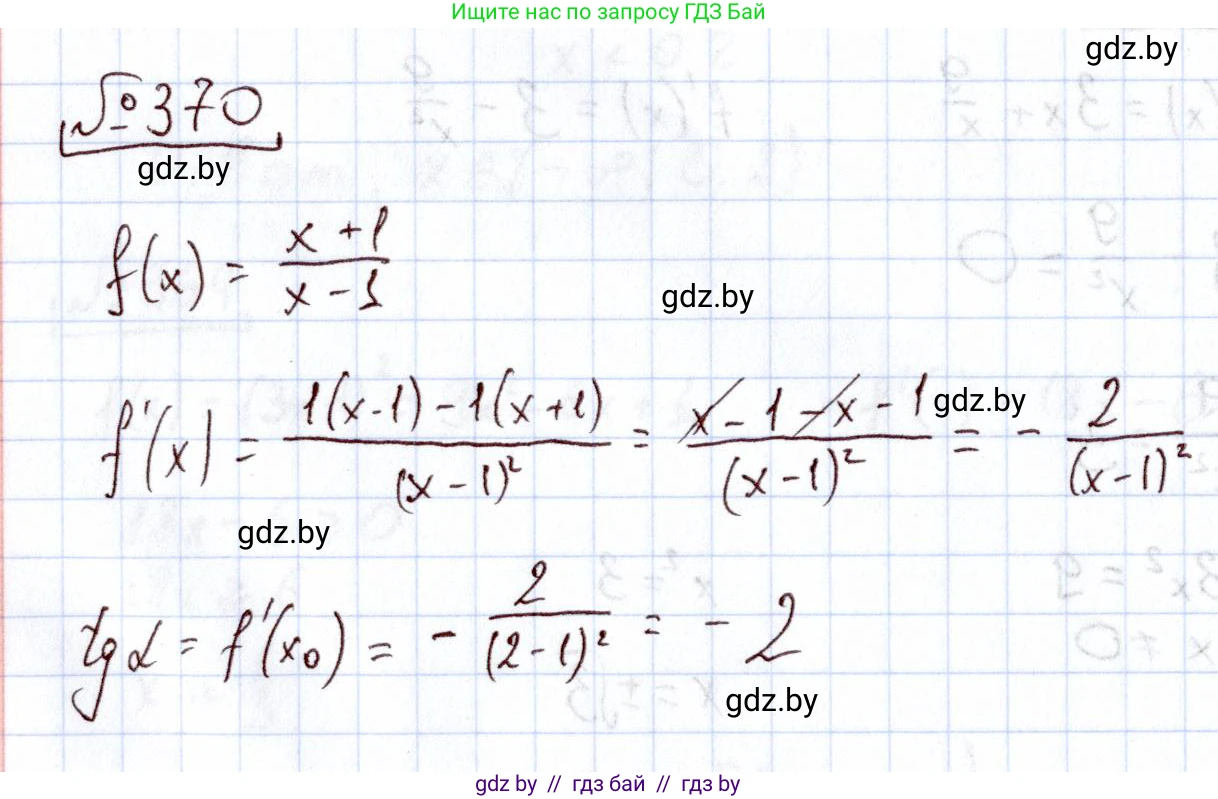 Ищите нас по запросу ГДЗ Бай
gdz.by
№370
gdz.by
f(x) = (x + 1)/(x - 1)
gdz.by
f'(x) = (1(x-1) - 1(x+1))/((x - 1)²) = (x - 1 - x - 1)/((x - 1)²) = - 2/((x-1)²)
gdz.by
gdz.by
tg α = f'(x₀) = - 2/((2-1)²) = - 2
gdz.by
gdz.by // гдз бай // gdz.by